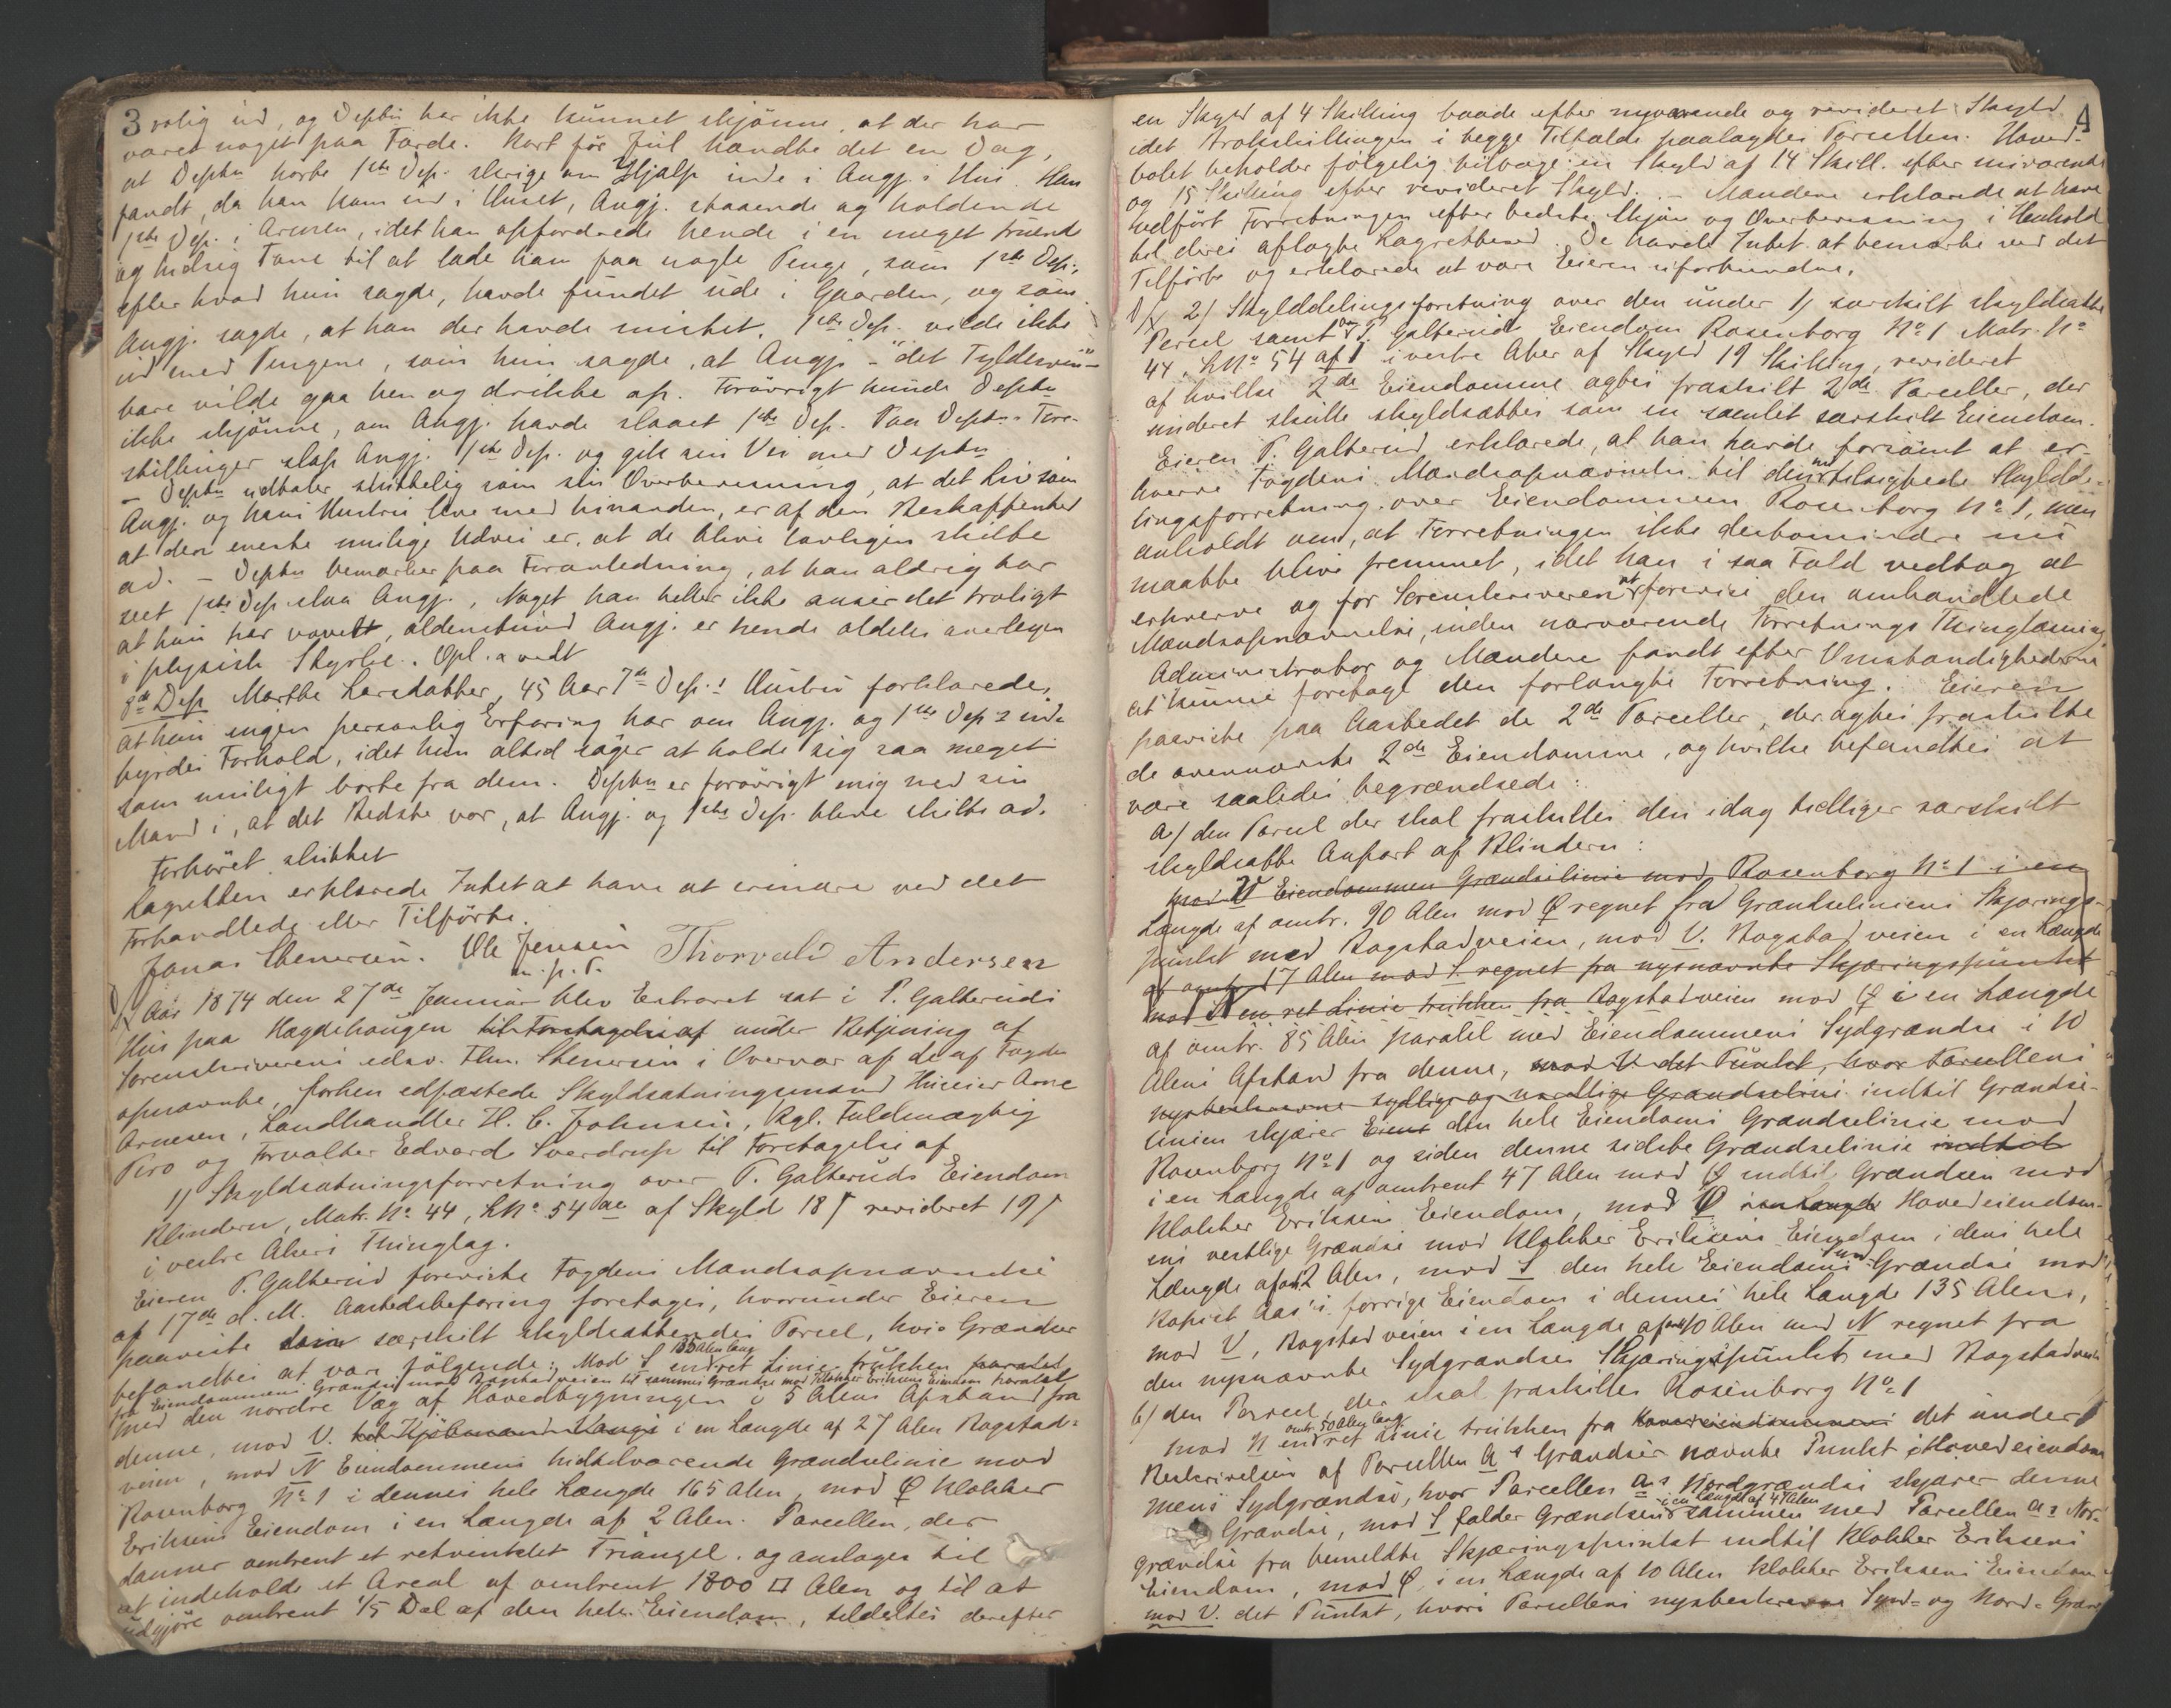 3 rolig ud, og Deptn har ikke kunnet skjönne, at der har
været noget paa Færde. Kort för Jul hændte det en Dag,
at Deptn hørte 1ste Dep. skrige om Hjælp inde i Angj.s Hus. Han
fandt, da han kom ind i Huset, Angj. staaende og holdende
1ste Dep. i Armen, idet han opfordrede hende i en meget truende
og hidsig Tone til at lade ham faa nogle Penge, som 1ste Dep.,
efter hvad hun sagde, havde fundet ude i Gaarden, og som
Angj. sagde, at han der havde mistet. 1ste Dep. vilde ikke
ud med Pengene, som hun sagde, at Angj. - "det Fyldesvin" -
bare vilde gaa hen og drikke op. Forövrigt kunde Deptn
ikke skjönne, om Angj. havde slaaet 1ste Dep. Paa Deptns Fore-
stillinger slap Angj. 1ste Dep. og gik sin Vei med Deptn
- Deptn udtaler sluttelig som sin Overbevisning, at det Liv som
Angj. og hans Hustru leve med hinanden, er af den Beskaffenhed
at den eneste mulige Udvei er, at de blive lovligen skilte
ad. - Deptn bemærker paa Foranledning, at han aldrig har
seet 1ste Dep. slaa Angj., Noget han heller ikke anser det troligt
at hun har vovet, aldenstund Angj. er hende aldeles overlegen
i physisk Styrke. Opl. a vedt
8de Dep Marthe Larsdatter, 45 Aar 7de Dep.s Hustru forklarede,
at hun ingen personlig Erfaring har om Angj. og 1ste Dep.s ind-
byrdes Forhold, idet hun altid søger at holde sig saa meget
som muligt borte fra dem. Deptn er forövrigt enig med sin
Mand i, at det Bedste var, at Angj. og 1ste Dep. bleve skilte ad.
Forhöret sluttet
Lagretten erklærede Intet at have at erindre ved det
Forhandlede eller Tilförte.
Jonas Stenersen. Ole Jensen Thorvald Andersen
m. p. P.
Aar 1874 den 27de Januar blev Extraret sat i P. Galteruds
Hus paa Hægdehaugen til Foretagelse af under Betjening af
Sorenskriverens edsv. Fm. Stenersen i Overvær af de af Fogden
opnævnte, forhen edfæstede Skyldsætningsmænd Huseier Arne
Arnesen, Landhandler H. C. Johnsen, Kgl. Fuldmægtig
Piro og Forvalter Edvard Sverdrup til Foretagelse af
1) Skyldsætningsforretning over P. Galteruds Eiendom
Blindern, Matr. No 44, LNo 54 ae af Skyld 18 ß revideret 19 ß
i vestre Akers Thinglag.
Eieren P. Galterud foreviste Fogdens Mandsopnævnelse
af 17de d. M. Aastedsbefaring foretoges, hvorunder Eieren
paaviste den særskilt skyldsættendes Parcel, hvis Grændser
befandtes at være følgende: Mod S en 135 Alen lang ret Linie trukken parallel
fra Eiendommens Grændse mod Bogstadveien til sammes Grændse mod Klokker Eriksens Eiendom parallel
med den nordre Væg af Hovedbygningen i 5 Alens Afstand fra
denne, mod V. i en Længde af 27 Alen Bogstad-
veien, mod N Eiendommens hidtilværende Grændselinie mod
Rosenborg No 1 i dennes hele Længde 165 Alen, mod Ø Klokker
Eriksens Eiendom i en Længde af 2 Alen. Parcellen, der
danner omtrent et retvinklet Triangel, og ansloges til
at indeholde et Areal af omtrent 1800 □ Alen og til at
udgjöre omtrent 1/5 Del af den hele Eiendom, tildeltes derefter
4
en Skyld af 4 Skilling baade efter nuværende og revideret Skyld
idet Brökskillingen i begge Tilfælde paalagdes Parcellen. Hoved-
bölet beholder følgelig tilbage en Skyld af 14 Skill. efter nuværende
og 15 Skilling efter revideret Skyld. - Mændene erklærede at have
udfört Forretningen efter bedste Skjön og Overbevisning i Henhold
til deres aflagte Lagretteed. De havde Intet at bemærke ved det
Tilförte og erklærede at være Eieren uforbundne.
2) Skylddelingsforretning over den under 1) særskilt skyldsatte
Parcel samt over P. Galteruds Eiendom Rosenborg No 1 Matr. No
44, LNo 54 af 1 i vestre Aker af Skyld 19 Skilling, revideret
af hvilke 2de Eiendomme agtes fraskilt 2de Parceller, der
underet skulle skyldsættes som en samlet særskilt Eiendom.
Eieren P. Galterud erklærede, at han havde forsömt at er-
hverve Fogdens Mandsopnævnelse til den nu tilsigtede Skyldde-
lingsforretning over Eiendommen Rosenborg No 1, men
anholdt om, at Forretningen ikke destomindre nu
maatte blive fremmet, idet han i saa Fald vedtog at
erhverve og for Sorenskriveren at forevise den omhandlede
Mandsopnævnelse, inden nærværende Forretnings Thinglæsning
Administrator og Mændene fandt efter Omstændighederne
at kunne foretage den forlangte Forretning. Eieren
paaviste paa Aastedet de 2de Parceller, der agtes fraskilte
de ovennævnte 2de Eiendomme, og hvilke befandtes at
være saaledes begrændsede:
a) den Parcel der skal fraskilles den idag tidligere særskilt
skyldsatte Anpart af Blindern:
mod N Eiendommen Grændselinie mod Rosenborg No 1 i en
Længde af omtr. 90 Alen mod Ø regnet fra Grændseliniens Skjærings-
punkt med Bogstadveien, mod V. Bogstadveien i en Længde
af omtrent 17 Alen mod S. regnet fra nysnævnte Skjæringspunkt
mod N en ret Linie trukken fra Bogstadveien mod Ø i en Længde
af omtr. 85 Alen paralel med Eiendommens Sydgrændse i 10
Alens Afstand fra denne, mod V det Punkt, hvor Parcellens
nysbeskrevne sydlige og nordlige Grændselinie indtil Grændse-
linien skjærer Eiend den hele Eiendoms Grændselinie mod
Rosenborg No 1 og siden denne sidste Grændselinie indtil
i en Længde af omtrent 47 Alen mod Ø indtil Grændsen mod
Klokker Eriksens Eiendom, mod Ø i en Længde Hovedeiendom-
ens vestlige Grændse mod Klokker Eriksens Eiendom i dens hele
Længde af omtr. 2 Alen, mod S den hele Eiendoms Syd Grændse mod
Kopist Aas's forrige Eiendom i dennes hele Længde 135 Alen,
mod V, Bogstadveien i en Længde af omtr. 10 Alen mod N regnet fra
den nysnævnte Sydgrændses Skjæringspunkt med Bogstadveien
b) den Parcel, der skal fraskilles Rosenborg No 1
mod N en omtr. 50 Alen lang ret Linie trukken fra Hovedeiendommens det under
Beskrivelsen af Parcellen a's Grændser nævnte Punkt i Hovedeiendom-
mens Sydgrændse, hvor Parcellen a's Nordgrændse skjærer denne
Grændse, mod S falder Grændsen i en Længde af 47 Alen sammen med Parcellen a's Nor-
grændse fra bemeldte Skjæringspunkt indtil Klokker Eriksens
Eiendom, mod Ø, i en Længde af 10 Alen Klokker Eriksens Eiendom
mod V. det Punkt, hvori Parcellens nysbeskrevne Syd- og Nord- Grænd